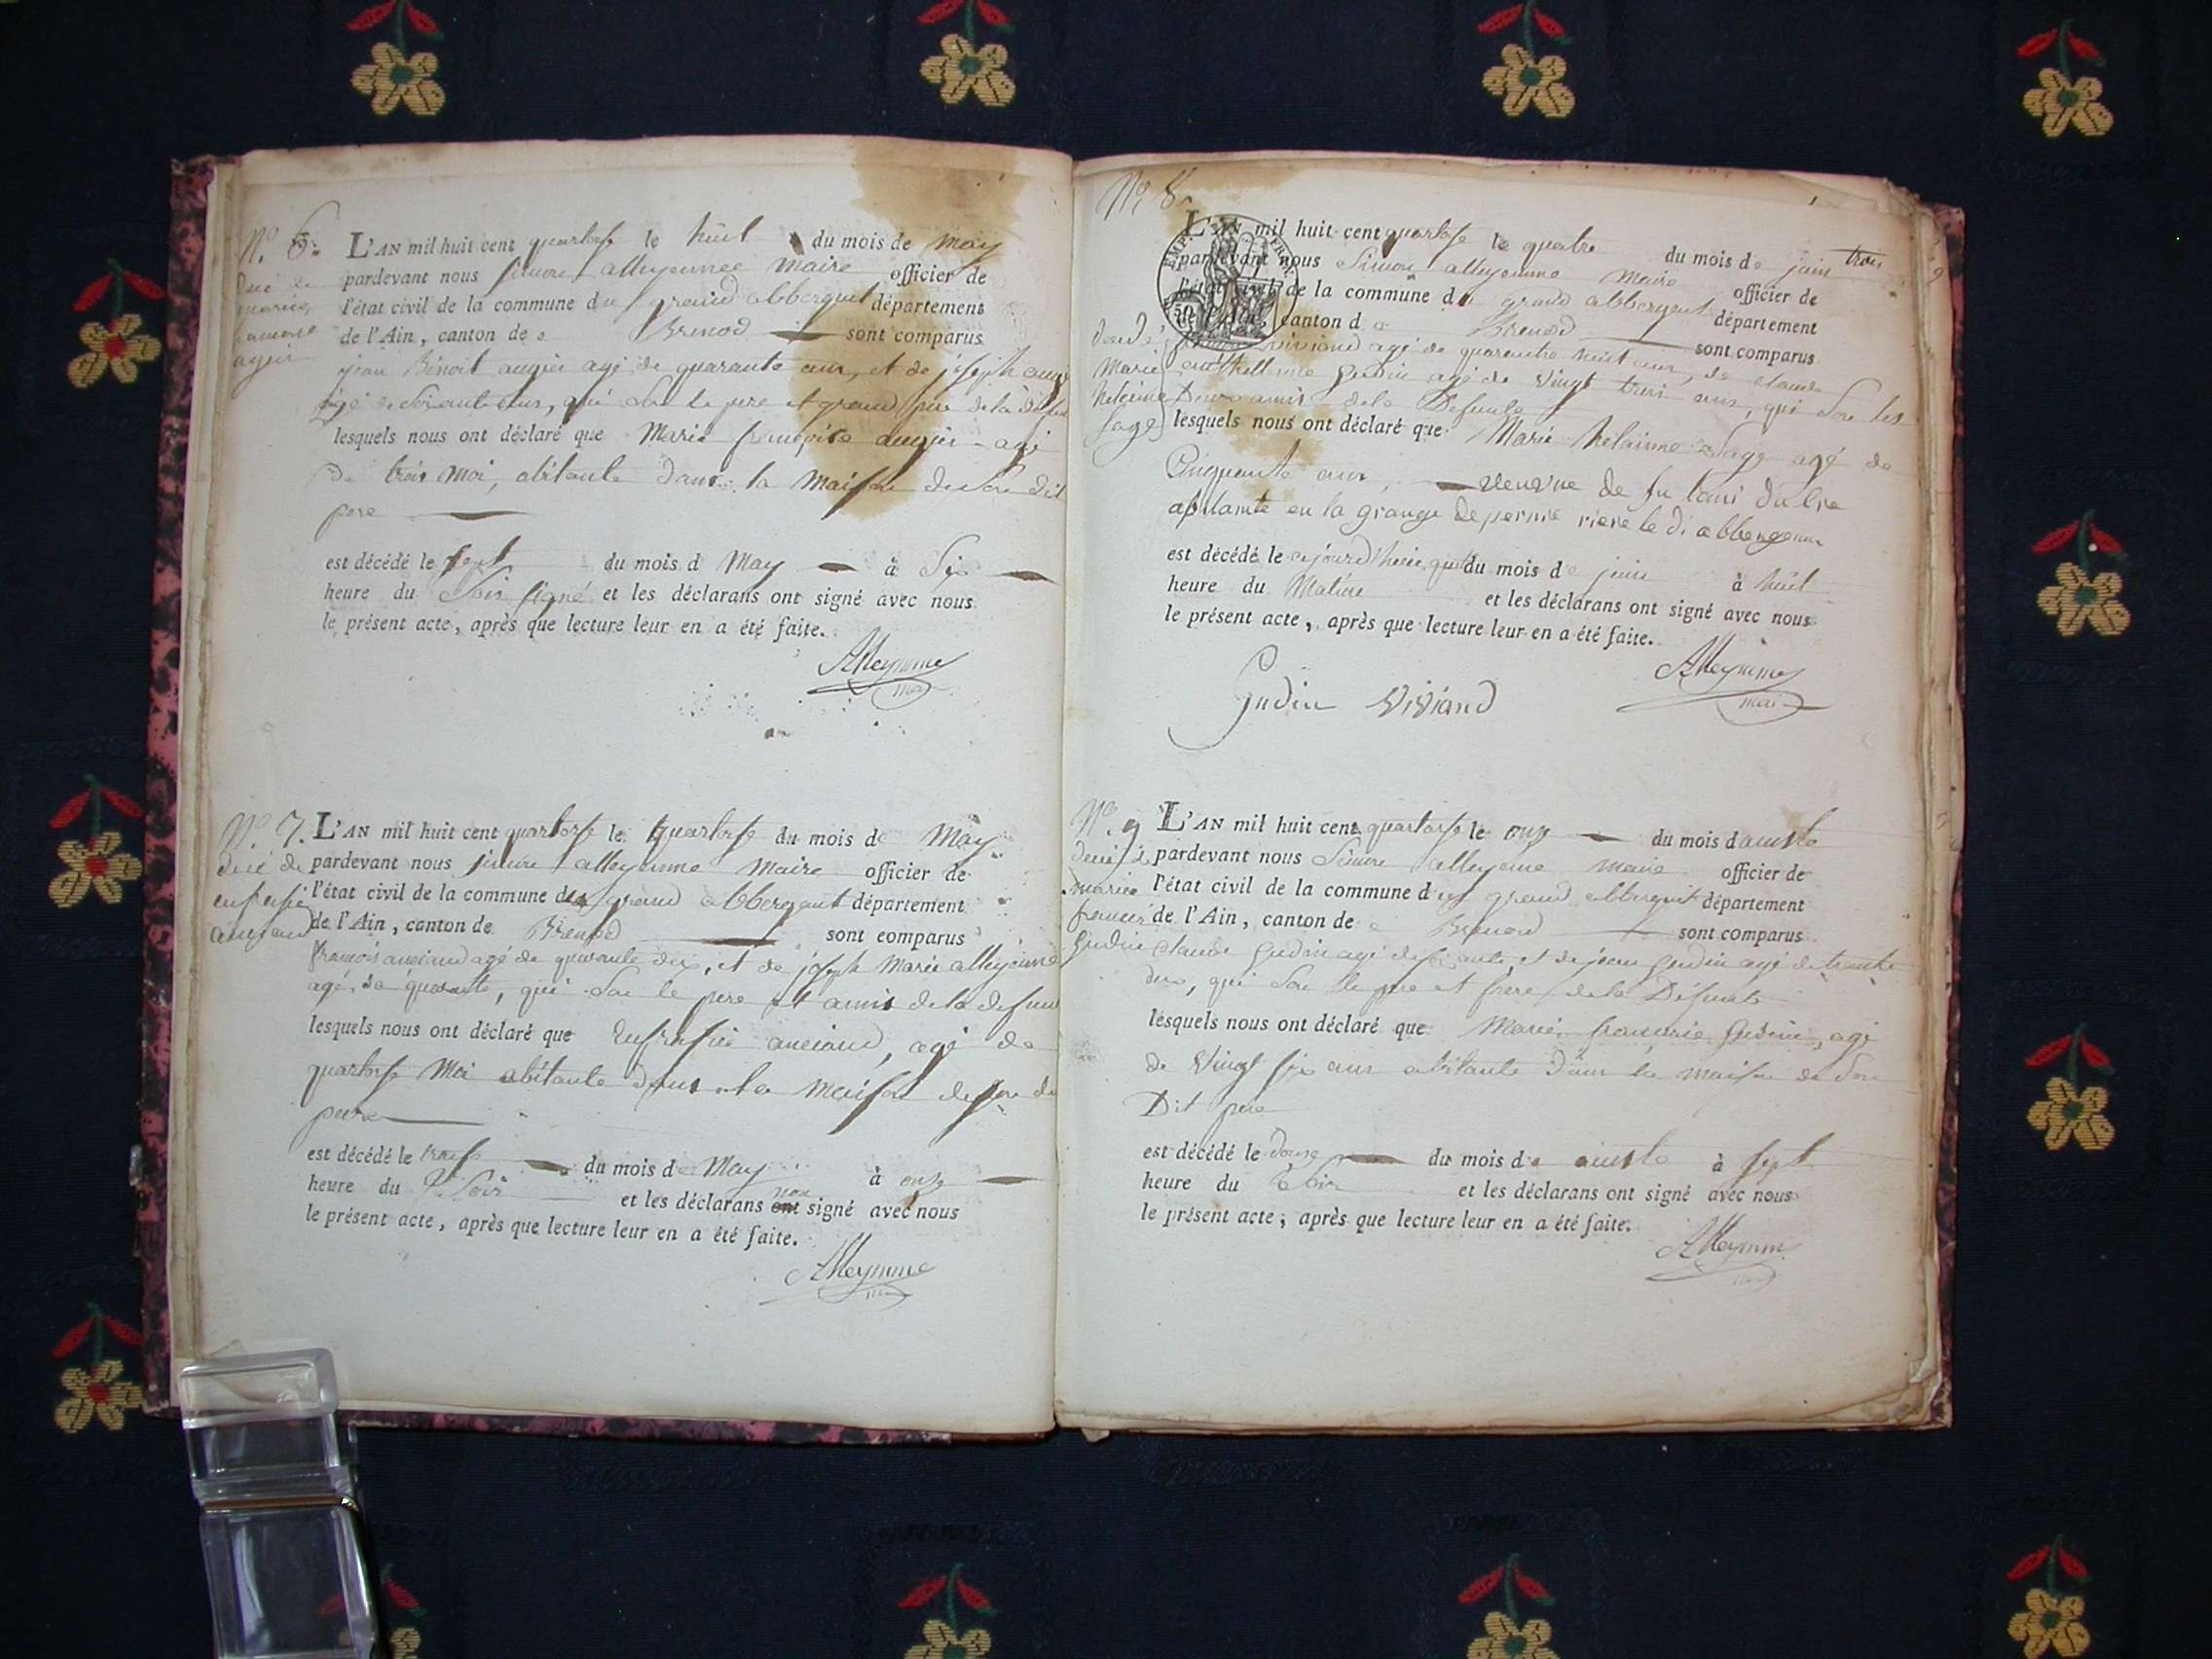 N.o 6.
L'AN mil huit cent quatorse le huit du mois de may
pardevant nous simon alleymme maire officier de
l'état civil de la commune du grand abbergent département
de l'Ain, canton de Brenod sont comparus
jean Benoit augier agé de quarante ans, et de joseph
agé de soixante ans, qui son le pere et grand pere de la
lesquels nous ont déclaré que Marie françoise augier agé
de trois moi, abitante dans la maison de son dit
pere
est décédé le sept du mois d May à six
heure du soir signé et les déclarans ont signé avec nous
le présent acte, après que lecture leur en a été faite.
Alleymme
maire
N.o 7.
décé de
anciand
L'AN mil huit cent quatorse le quatorse du mois de May
pardevant nous simon alleymme maire officier de
l'état civil de la commune du grand abbergent département
de l'Ain, canton de Brenod sont comparus
françois anciand agé de quarante dix, et de joseph Marie alleymme
agé de quarante, qui son le pere et amis de la defun
lesquels nous ont déclaré que Eufrasie anciand, agé de
quatorse Moi abitante dans la maison de son di
pere
est décédé le treise du mois de May à onse
heure du Soir et les déclarans ont non signé avec nous
le présent acte, après que lecture leur en a été faite.
Alleymme
N.o 8.
Marie
helainne
Sage
EMP. FR.
L'AN mil huit cent quatorse le quatre du mois de juin trois
pardevant nous Simon alleymme maire officier de
l'état civil de la commune du grand abbergent département
de l'Ain, canton de Brenod sont comparus
viviand agé de quarante huit ans, de claude
Gudin agé de vingt trois ans, qui son les
Deux amis de la Defunte
lesquels nous ont déclaré que Marie helainne Sage agé de
Cinquante ans, veuve de fu
abitante en la grange
est décédé le cejourd'huis du mois de juin à huit
heure du Matin et les déclarans ont signé avec nous
le présent acte, après que lecture leur en a été faite.
Alleymme
maire
Gudin Viviand
N.o 9
décé de
marie
Gudin
L'AN mil huit cent quatorse le onse du mois d
pardevant nous Simon alleymme maire officier de
l'état civil de la commune du grand abbergent département
de l'Ain, canton de Brenod sont comparus
claude Gudin agé de soixante, et de jean Gudin agé de trante
dux, qui son le pere et frere de la Défunte
lesquels nous ont déclaré que Marie Gudin, agé
de vingt six ans abitante dans la maison de son
Dit pere
est décédé le douse du mois de à sept
heure du Soir et les déclarans ont signé avec nous
le présent acte, après que lecture leur en a été faite.
Alleymme